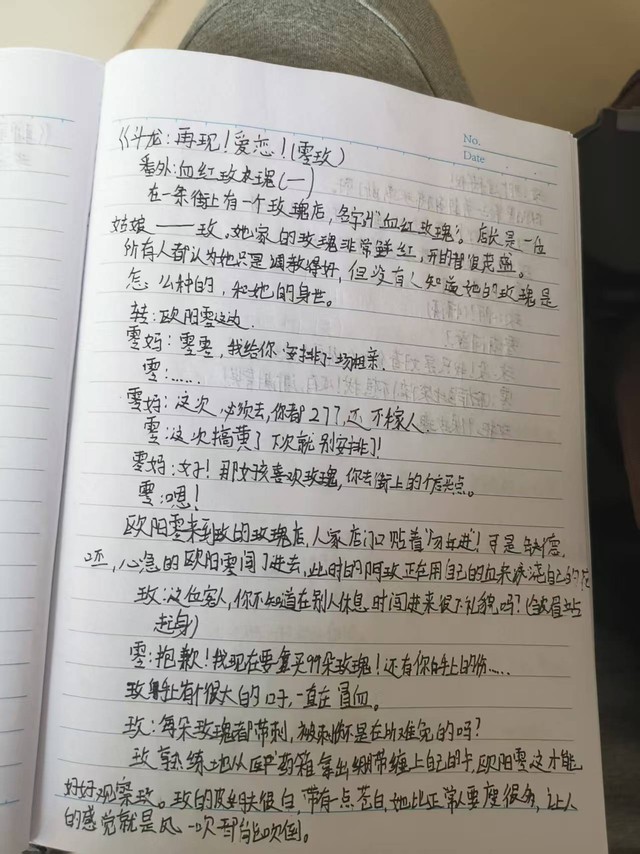 No.
Date
《斗龙：再现！爱恋！(零玫)
番外：血红玫瑰(一)
在一条街上有一个玫瑰店，名字叫"血红玫瑰"。店长是一位
姑娘——玫。她家的玫瑰非常鲜红，开的都很茂盛。
所有人都认为她只是调教得好，但没有人知道她的玫瑰是
怎么种的，和她的身世。
转：欧阳零这边
零妈：零零，我给你安排了一场相亲.
零：……
零妈：这次必须去，你都27了，还不嫁人.
零：这次搞黄了下次就别安排了！
零妈：好！那女孩喜欢玫瑰，你去街上的个店买点。
零：嗯！
欧阳零来到玫的玫瑰店，人家店门口贴着"勿进"！可是
，心急的欧阳零闯了进去，此时的阿玫正在用自己的血来浇自己的花
玫：这位客人，你不知道在别人休息时间进来很不礼貌吗？(皱眉站
起身)
零：抱歉！我现在要买99朵玫瑰！还有你手上的伤……
玫手上有个很大的口子，一直在冒血。
玫：每朵玫瑰都带刺，被刺不是在所难免的吗？
玫熟练地从医药箱拿出绷带缠上自己的手，欧阳零这才能
好好观察玫。玫的皮肤很白，带有一点苍白，她比正常人要瘦很多，让人
的感觉就是风一吹都能吹倒。